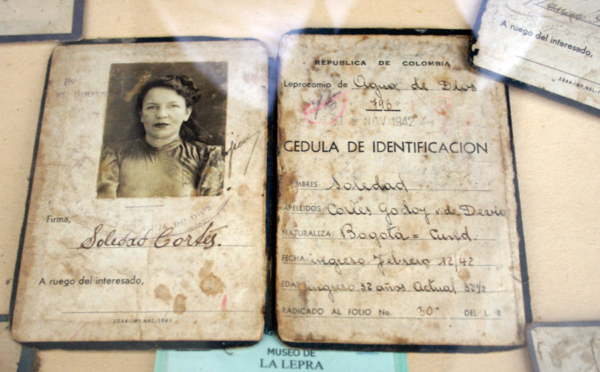 Firma,
Soledad Cortés.
A ruego del interesado,
REPUBLICA DE COLOMBIA
Leprocomio de Agua de Dios
796
NOV 1942
CEDULA DE IDENTIFICACION
NOMBRES Soledad
APELLIDOS Cortés Godoy v. de Devia
NATURALEZA Bogotá = Cund.
FECHA ingreso Febrero 12/42
EDAD ingreso 32 años Actual 32½
RADICADO AL FOLIO No. 30 DEL L R
A ruego del interesado,
MUSEO DE
LA LEPRA